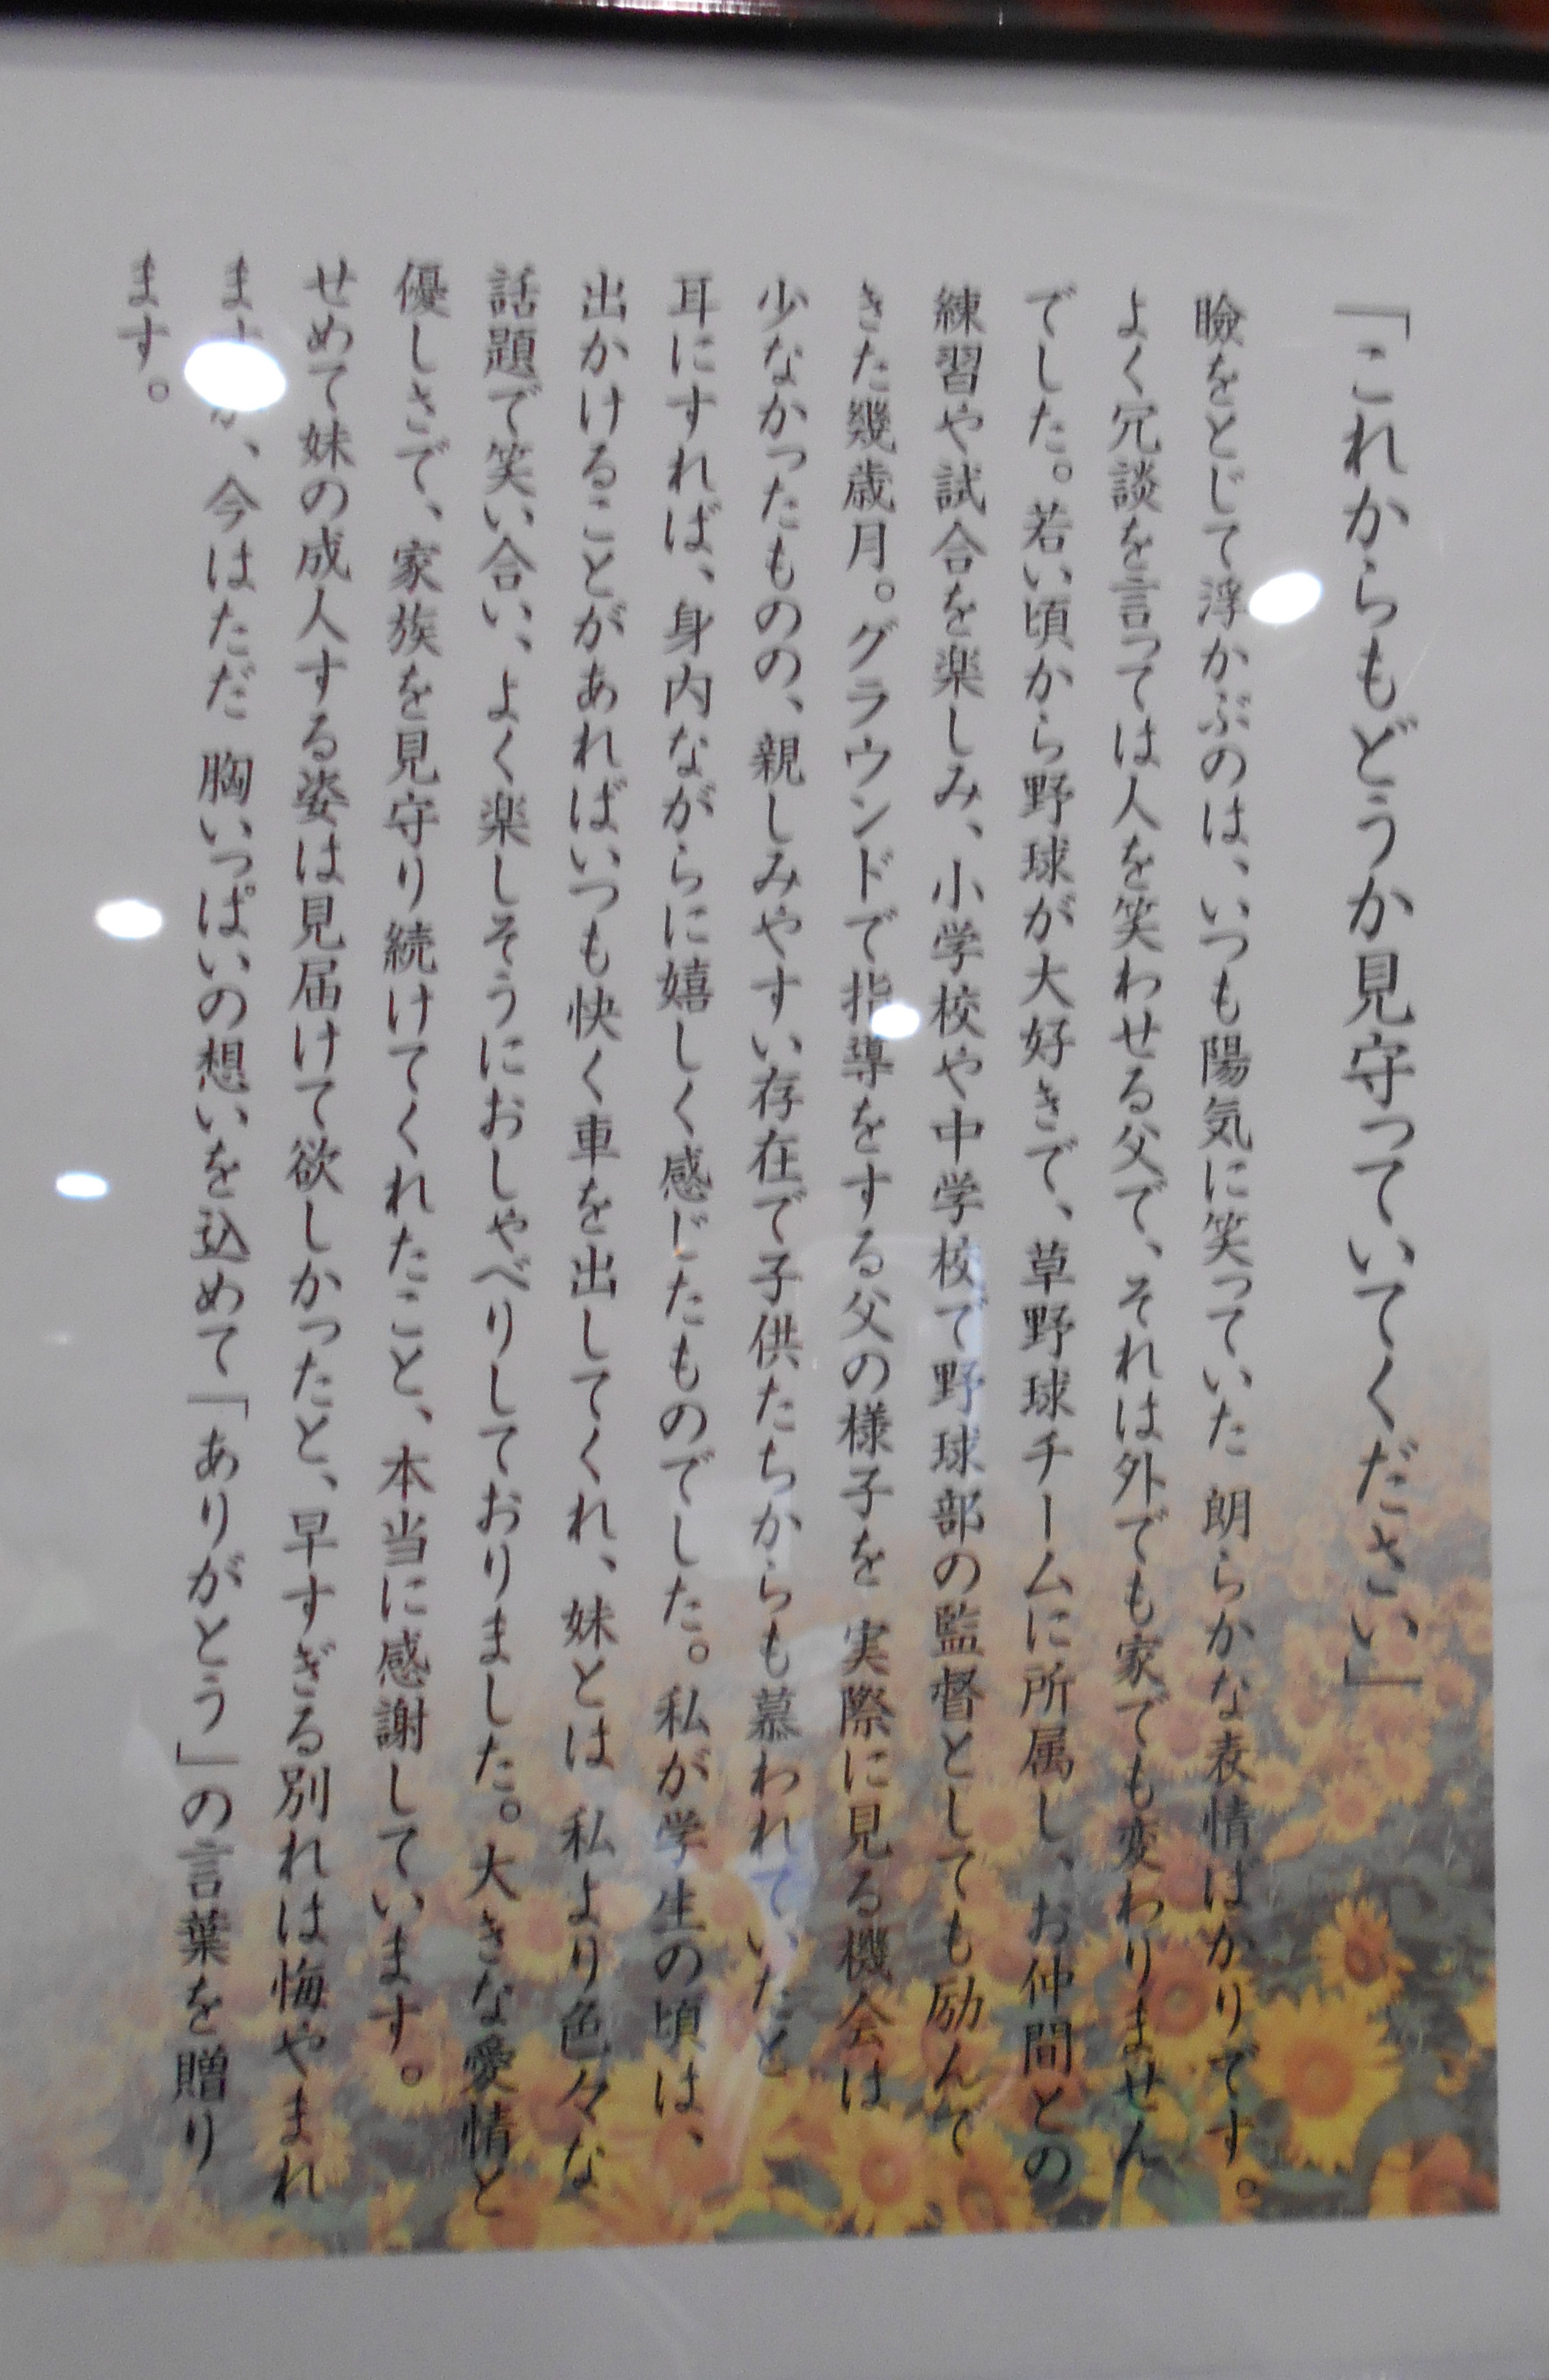 「これからもどうか見守っていてください」
瞼をとじて浮かぶのは、いつも陽気に笑っていた 朗らかな表情ばかりです。
よく冗談を言っては人を笑わせる父で、それは外でも家でも変わりません
でした。若い頃から野球が大好きで、草野球チームに所属し、お仲間との
練習や試合を楽しみ、小学校や中学校で野球部の監督としても励んで
きた幾歳月。グラウンドで指導をする父の様子を 実際に見る機会は
少なかったものの、親しみやすい存在で子供たちからも慕われていたと
耳にすれば、身内ながらに嬉しく感じたものでした。私が学生の頃は、
出かけることがあればいつも快く車を出してくれ、妹とは 私より色々な
話題で笑い合い、よく楽しそうにおしゃべりしておりました。大きな愛情と
優しさで、家族を見守り続けてくれたこと、本当に感謝しています。
せめて妹の成人する姿は見届けて欲しかったと、早すぎる別れは悔やまれ
ますが、今はただ 胸いっぱいの想いを込めて「ありがとう」の言葉を贈り
ます。